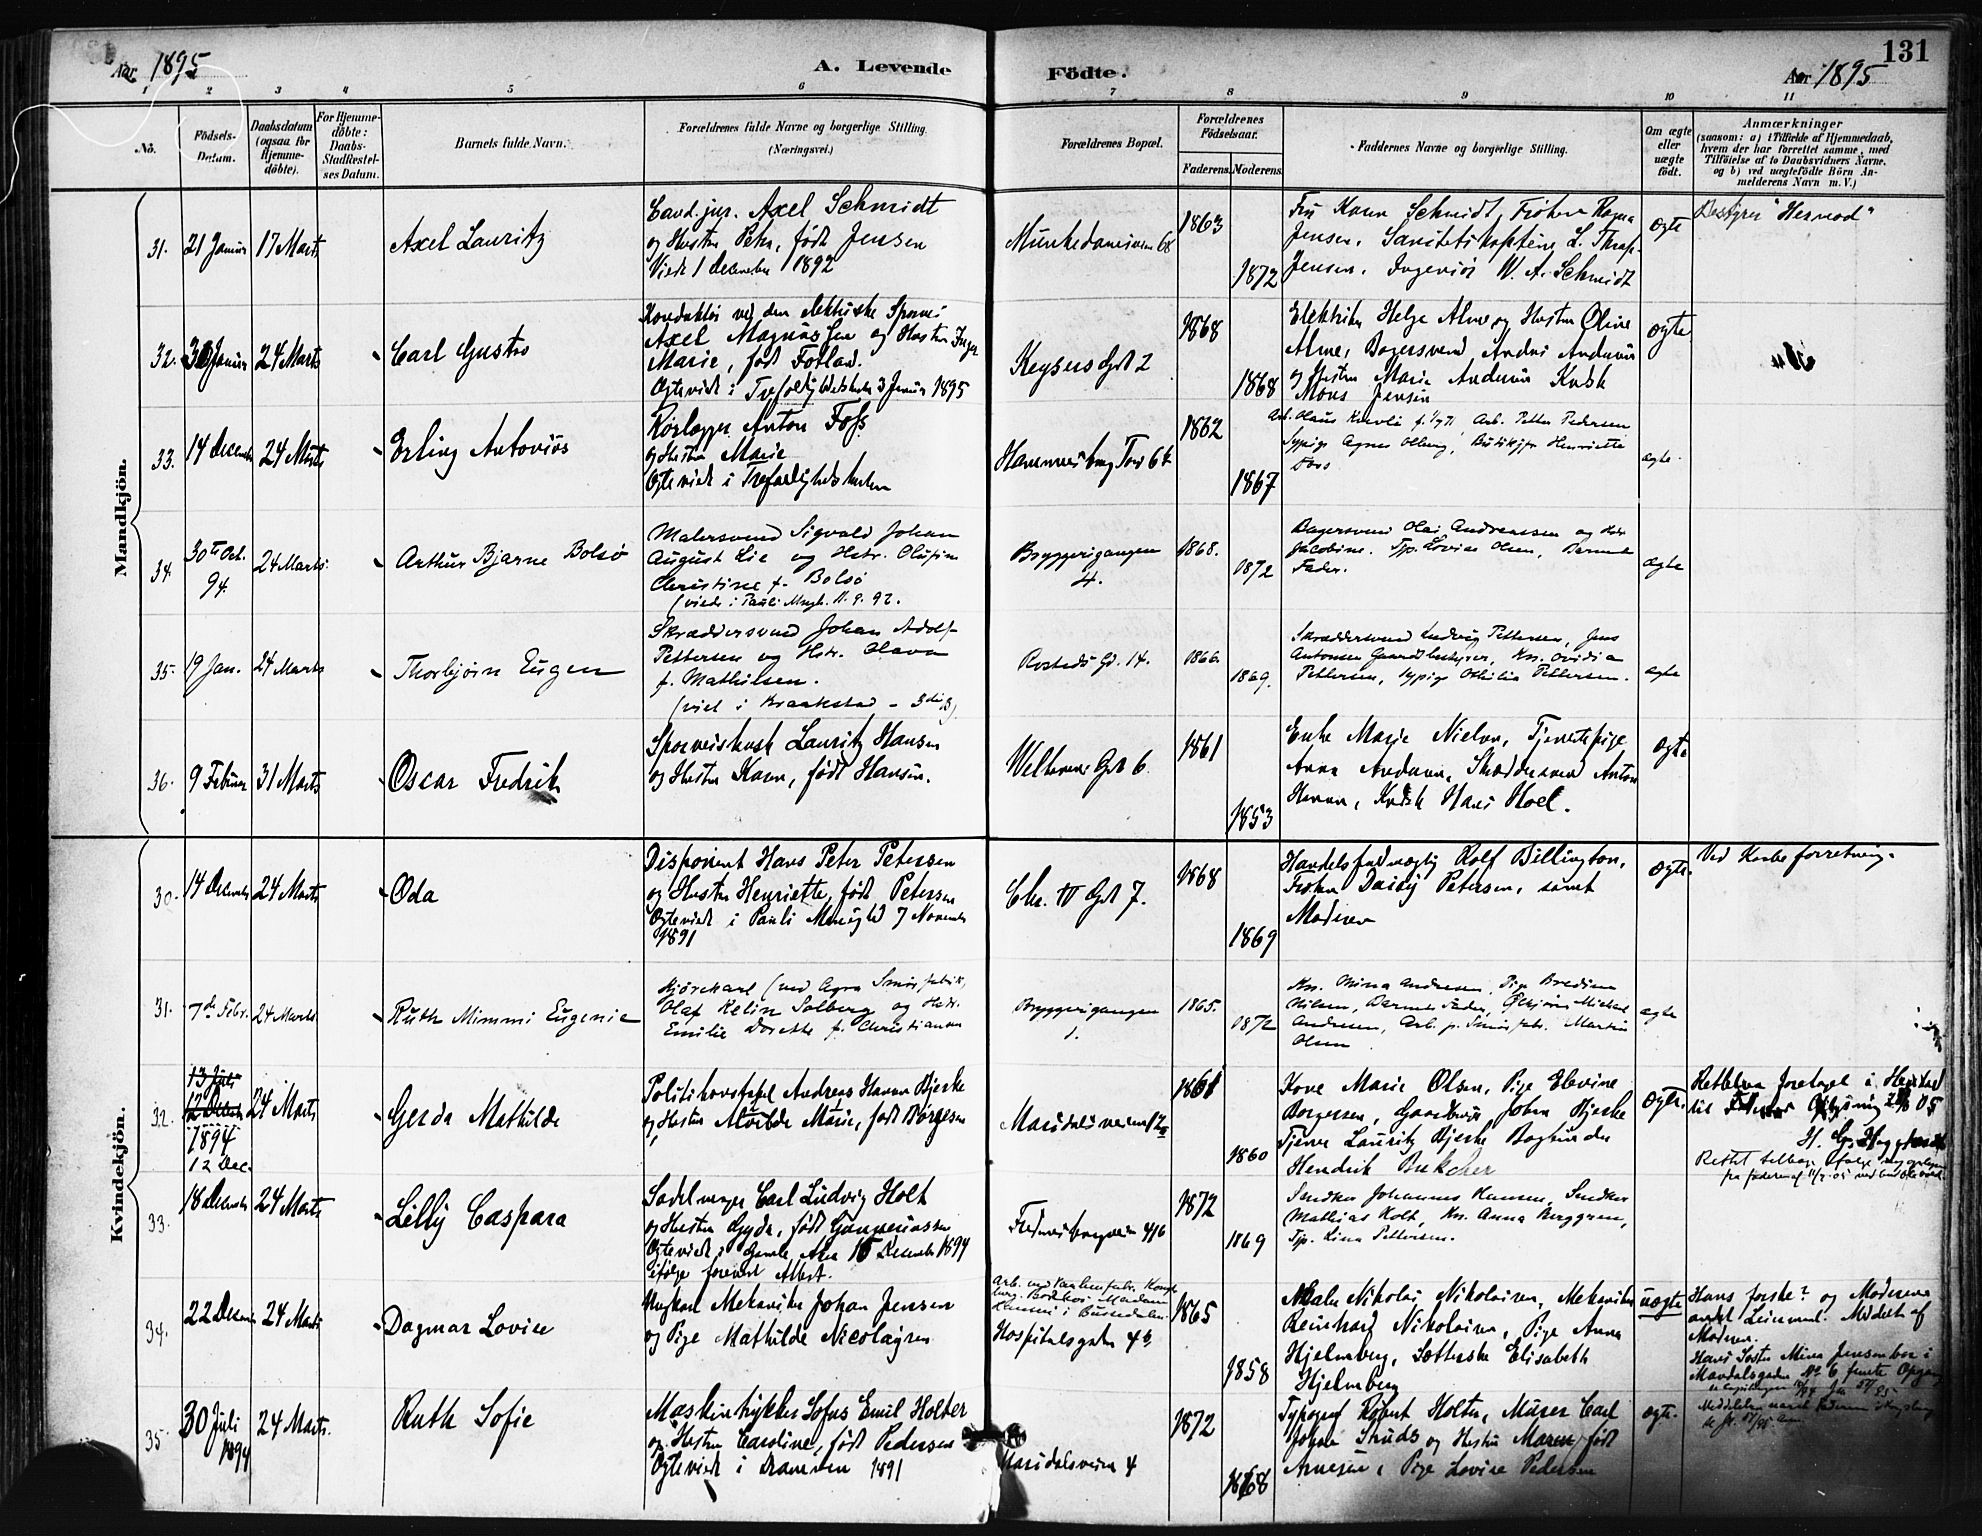 Aar 1895
A. Levende
Födte.
Aar 1895
131
1 2 3 4 5 6 7 8 9 10 11
No.
Födsels-
Datum.
Daabsdatum
(ogsaa for
Hjemme-
döbte).
For Hjemme-
döbte:
Daabs-
Stadfæstel-
ses Datum.
Barnets fulde Navn.
Forældrenes fulde Navne og borgerlige Stilling.
(Næringsvei.)
Forældrenes Bopæl.
Forældrenes
Födselsaar.
Faderens. Moderens.
Faddernes Navne og borgerlige Stilling.
Om ægte
eller
uægte
födt.
Anmærkninger
(saasom: a) i Tilfælde af Hjemmedaab,
hvem der har forrettet samme, med
Tilföielse af to Daabsvidners Navne,
og b) ved uægtefödte Börn An-
melderens Navn m. V.)
Mandkjön.
31.
21 Januar
17 Marts
Axel Lauritz
Cand. jur. Axel Schmidt
og Hustru Petra, født Jensen
Viede 1 December 1892
Munkedamsveien 68
1863
1872
Fru Schmidt, Frøken Ragna
Jensen, Sanitetskaptein L. Thrap-
Jensen, Ingeniør W. A. Schmidt
ægte
Bestyrer "Hermod"
32.
Januar
24 Marts
Carl Gustav
Konduktør ved den elektriske Sporvei
Axel Magnussen og Hustru Inger
Marie, født
Ægteviede i Trefoldighedskirken 3 Januar 1895
Keysers Gd 2
1868
1868
Elektriker Helge Alme og Hustru Oline
Alme, Bagersvend Andersen
og Hustru Marie Andersen Kudsk
Mons Jensen
ægte
33.
14 December
24 Marts
Erling Antonius
Rørlægger Anton Foss
og Hustru Marie
Ægteviede i Trefoldighedskirken
Hammersborg Torv 6
1862
1867
Arb. Petter Pedersen
Sypige Agnes Butikjfr Henriette
Foss
ægte.
34.
30te Oct.
94.
24 Marts.
Arthur Bjarne Bolsø
Malersvend Sigvald Johan
August Lie og Hstr. Olufine
Christine f. Bolsø
(viede i Pauli Mngh. 11. 9. 92.
Bryggerigangen
4.
1868.
1872
Bagersvend Andreassen og Hstr
Jacobine. Tjp. Lovise Olsen, Barnets
Fader.
ægte
35.
19 Jan.
24 Marts
Thorbjørn Eugen
Skræddersvend Johan Adolf
Pettersen og Hstr. Olava
f. Mathisen.
(viet i
Rosteds Gd. 14.
1866.
1869.
Skræddersvend Ludvig Pettersen, Jens
Antonsen Gaardsbestyrer, Kn. Ovidia
Pettersen, Sypige Othilia Pettersen.
ægte
36.
9 Februar
31 Marts
Oscar Fredrik
Sporveiskusk Lauritz Hansen
og Hustru Karen, født Hansen.
Welhavens Gd 6
1861
1853
Enke Marie Nielsen, Tjenestepige
Anna Andersen, Skræddersvend Anton
Hansen, Kudsk Hans Hoel.
ægte
Kvindekjön.
30.
14 December
24 Marts
Oda
Disponent Hans Peter Petersen
og Hustru Henriette, født Petersen
Ægteviede i Pauli Menighed 7 November
1891
Chr. IV Gd 7.
1868
1869
Handelsfuldmægtig Rolf Billington,
Frøken Daisy Petersen, samt
Moderen
ægte.
Ved
31.
7de Febr.
24 Marts
Ruth Mimmi Eugenie
Kjørekarl (ved Agra Smørfabrik,
Olaf Kelin Solberg og Hstr.
Emilie Dorethe f. Christiansen
Bryggerigangen
1.
1865.
1872
Kn. Mina Andresen, Pige Bredine
Nilsen, Barnets Fader, Michael
Andresen, Arb. p. Smørfabr. Martin
Olsen
ægte
32.
13 Juli
12 Decbr
1894
12 Dec.
24 Marts
Gerda Mathilde
Politikonstabel Andreas Hansen Bjerke
og Hustru Marie, født Børgesen
Maridalsveien
1861
1860
Kone Marie Olsen, Pige Elevine
Borgersen, Gaardbruger Johan Bjerke
Tjener Lauritz Bjerke Bogbinder
Hendrik
ægte.
Rettelsen foretaget i Henhold
til Faderens Opgivning 05
Rettet tilbage ifølge
33.
18 December
24 Marts
Lilly Caspara
Sadelmager Carl Ludvig Holt
og Hustru Gyda, født Gunneriussen
Ægteviede i Gamle Aker 15 December 1894
ifølge forevist Attest.
Fredensborgveien
1872
1869
Snedker Johannes Hansen, Snedker
Mathias Holt, Kn. Anna Berggren,
Tjp. Lina Pettersen.
34.
22 December
24 Marts
Dagmar Lovise
Ungkarl Mekaniker Johan Jensen
og Pige Mathilde Nicolaysen
Hospitalsgaden 4b
1865
1858
Maler Nikolai Nikolaisen, Mekaniker
Reinhard Nikolaisen, Pige Anna
Hjelmberg, Elisabeth
Hjelmberg
uægte
Hans første? og Moderens
andet Leiermaal. Meddelt af
Moderen.
Hans Søster Mina Jensen bor i
Mandalsgaden No 6
35.
30 Juli
1894
24 Marts.
Ruth Sofie
Maskintrykker Sofus Emil Holter
og Hustru Caroline, født Pedersen
Ægteviede i Drammen 1891
Maridalsveien 4
1872
1868
Typograf Robert Holter, Murer Carl
Johan og Hustru Maren født
Arnesen, Pige Lovise Pedersen
ægte.